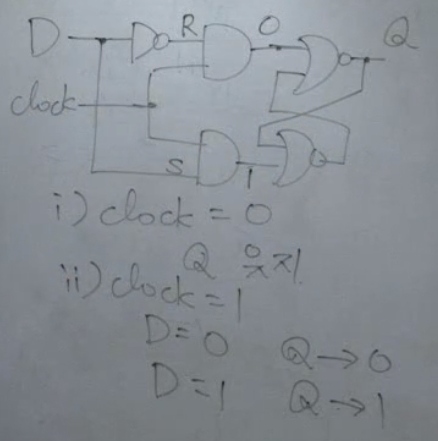 D R 0 Q
clock
S 1
i) clock = 0
Q
ii) clock = 1
D = 0 Q → 0
D = 1 Q → 1